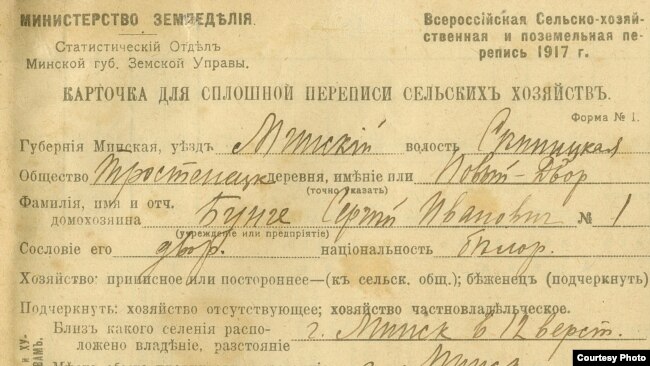 МИНИСТЕРСТВО ЗЕМЛЕДѢЛІЯ.
Статистическій Отдѣлъ
Минской губ. Земской Управы.
Всероссійская Сельско-хозяй-
ственная и поземельная пе-
репись 1917 г.
КАРТОЧКА ДЛЯ СПЛОШНОЙ ПЕРЕПИСИ СЕЛЬСКИХЪ ХОЗЯЙСТВЪ.
Форма № 1.
Губернія Минская, уѣздъ Минскій волость Сеницкая
Общество Тростенецк деревня, имѣніе или Новый-Двор
(точно указать)
Фамилія, имя и отч. домохозяина Бунге Сергій Иванович № 1
(учрежденіе или предпріятіе)
Сословіе его двор. національность бѣлор.
Хозяйство: приписное или постороннее—(къ сельск. общ.); бѣженецъ (подчеркнуть)
Подчеркнуть: хозяйство отсутствующее; хозяйство частновладѣльческое.
Близъ какого селенія распо-
ложено владѣніе, разстояніе г. Минск в 12 верст.
Минск
Courtesy Photo